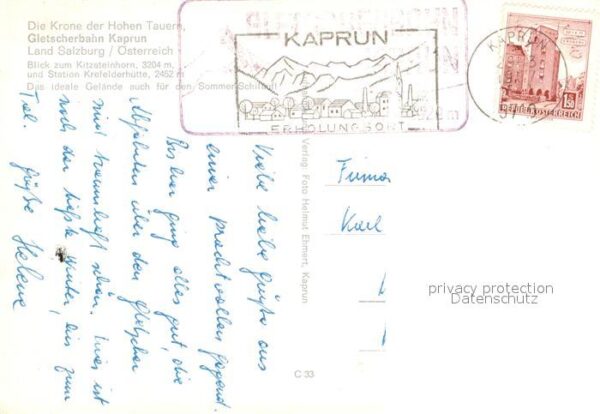 Die Krone der Hohen Tauern,
Gletscherbahn Kaprun
Land Salzburg / Österreich
Blick zum Kitzsteinhorn, 3204 m,
und Station Krefelderhütte, 2452 m
Das ideale Gelände auch für den Sommer-Schilauf!
KAPRUN
ERHOLUNGSORT
KAPRUN
REPUBLIK ÖSTERREICH
Viele liebe Grüße aus
einer prachtvollen Gegend.
Bisher ging alles gut, die
Abfahrten über den Gletscher
sind traumhaft schön. Hier ist
noch der tiefste Winter, bis zum
Tal. Grüße Helene
Verlag Foto Helmut Ehmert, Kaprun
C 33
Firma
Karl
privacy protection
Datenschutz